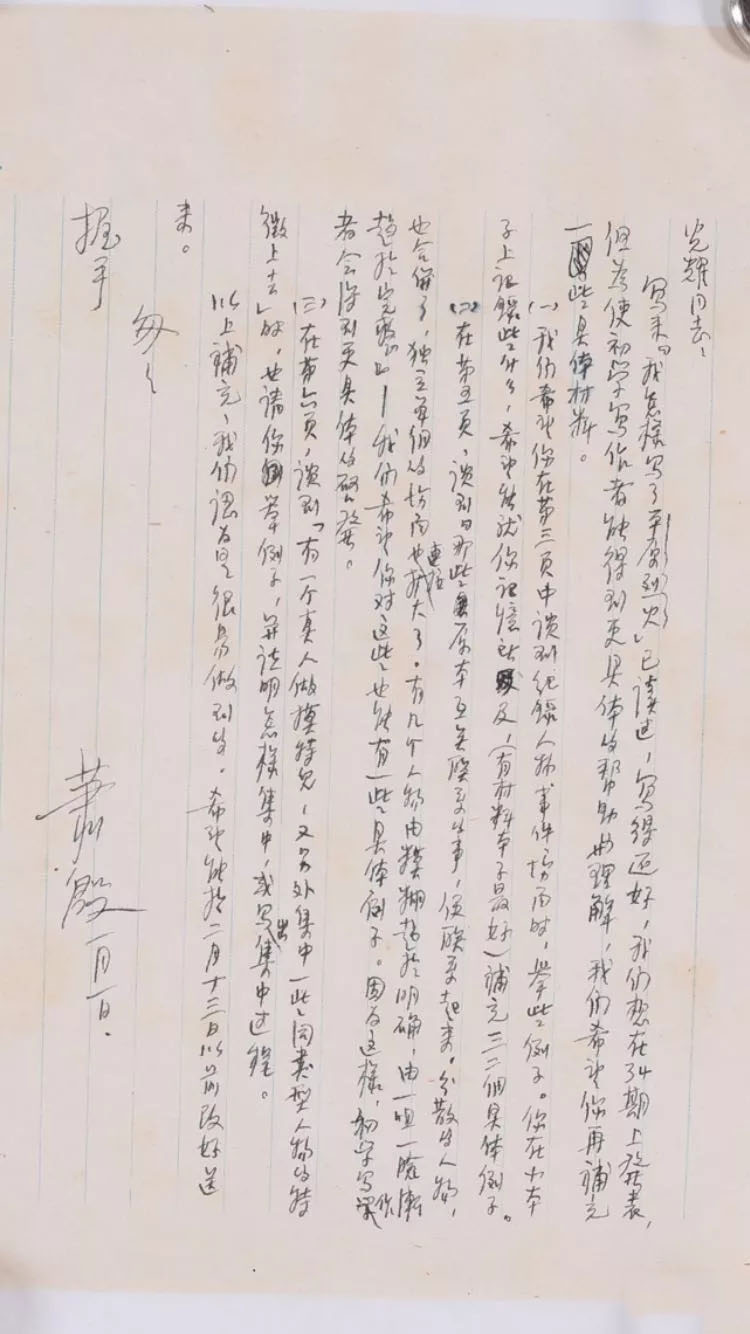 光耀同志：
写来的「我怎样写了平原烈火」已读过，写得还好，我们想在34期上发表，
但为使初学写作者能得到更具体的帮助与理解，我们希望你再补充
一些具体材料。
(一)我们希望你在第三页中谈到纪录人物事件场面时，举些例子。你在小本
子上记录些什么，希望能就你记忆所及，(有材料本子最好)补充三二個具体例子。
(二)在第五页，谈到「那些原本互无联系的事，便联系起来。分散的人物，
也合併了，独立单细的场面也连接扩大了。有几个人物由模糊趋于明确，由一咀一臉漸
趋於完整」——我们希望你对这些也能有一些具体例子。因为这样，初学写作
者会得到更具体的啓發。
(三)在第六页，谈到「有一个真人做模特兒，又另外集中一些同类型人物的特
徵上去」时，也请你举例子，并说明怎样集中，或写出集中过程。
以上補充，我们認为是很易做到的。希望能於二月十三日以前改好送
来。
匆匆
握手
萧殷 二月一日.